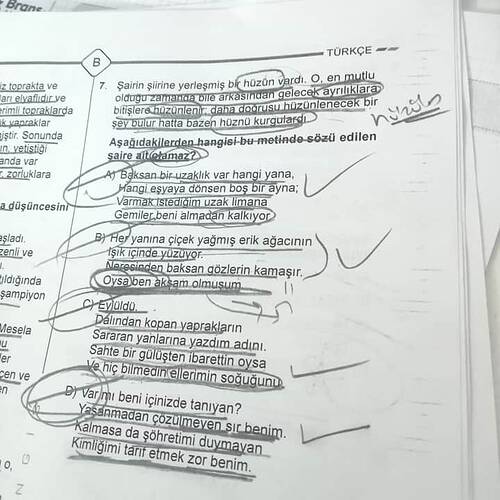 Brans
B
TÜRKÇE
7. Şairin şiirine yerleşmiş bir hüzün vardı. O, en mutlu
olduğu zamanda bile arkasından gelecek ayrılıklara
bitişlere hüzünlenir, daha doğrusu hüzünlenecek bir
şey bulur hatta bazen hüznü kurgulardı.
hüzün
Aşağıdakilerden hangisi bu metinde sözü edilen
şaire ait olamaz?
A) Baksan bir uzaklık var hangi yana,
Hangi eşyaya dönsen boş bir ayna;
Varmak istediğim uzak limana
Gemiler beni almadan kalkıyor.
B) Her yanına çiçek yağmış erik ağacının
Işık içinde yüzüyor.
Neresinden baksan gözlerin kamaşır.
Oysa ben akşam olmuşum
C) Eylüldü.
Dalından kopan yaprakların
Sararan yanlarına yazdım adını.
Sahte bir gülüşten ibarettin oysa
Ve hiç bilmedin ellerimin soğuğunu.
D) Var mı beni içinizde tanıyan?
Yaşanmadan çözülmeyen sır benim.
Kalmasa da şöhretimi duymayan
Kimliğimi tarif etmek zor benim.
iz toprakta ve
arı elyaflıdır ve
erimli topraklarda
k yapraklar
iştir. Sonunda
ın, yetiştiği
anda var
r, zorluklara
a düşüncesini
aşladı.
zenli ve
ıldığında
şampiyon
Mesela
u
ler
çen ve
en
o,